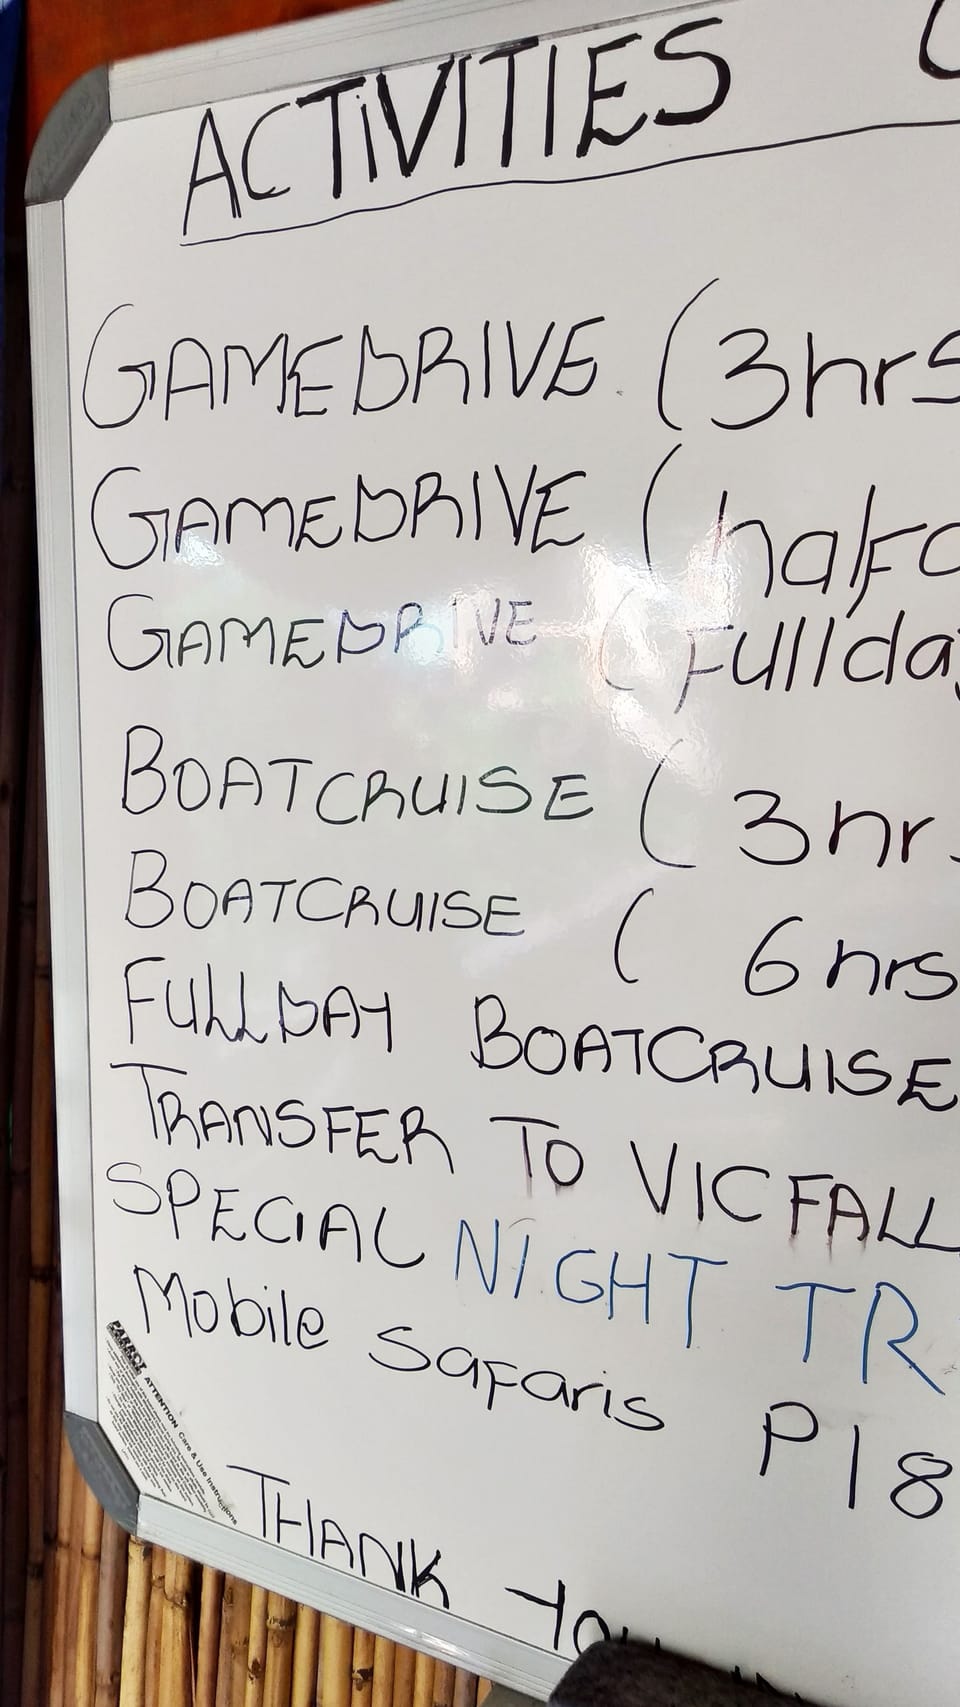 ACTIVITIES
GAMEDRIVE (3hrs
GAMEDRIVE (half
GAMEDRIVE (Fullday
BOATCRUISE (3hr
BOATCRUISE ( 6hrs
FULLDAY BOATCRUISE
TRANSFER TO VICFALL
SPECIAL NIGHT TR
Mobile Safaris P18
PARROT
ATTENTION Care & Use Instructions
THANK You